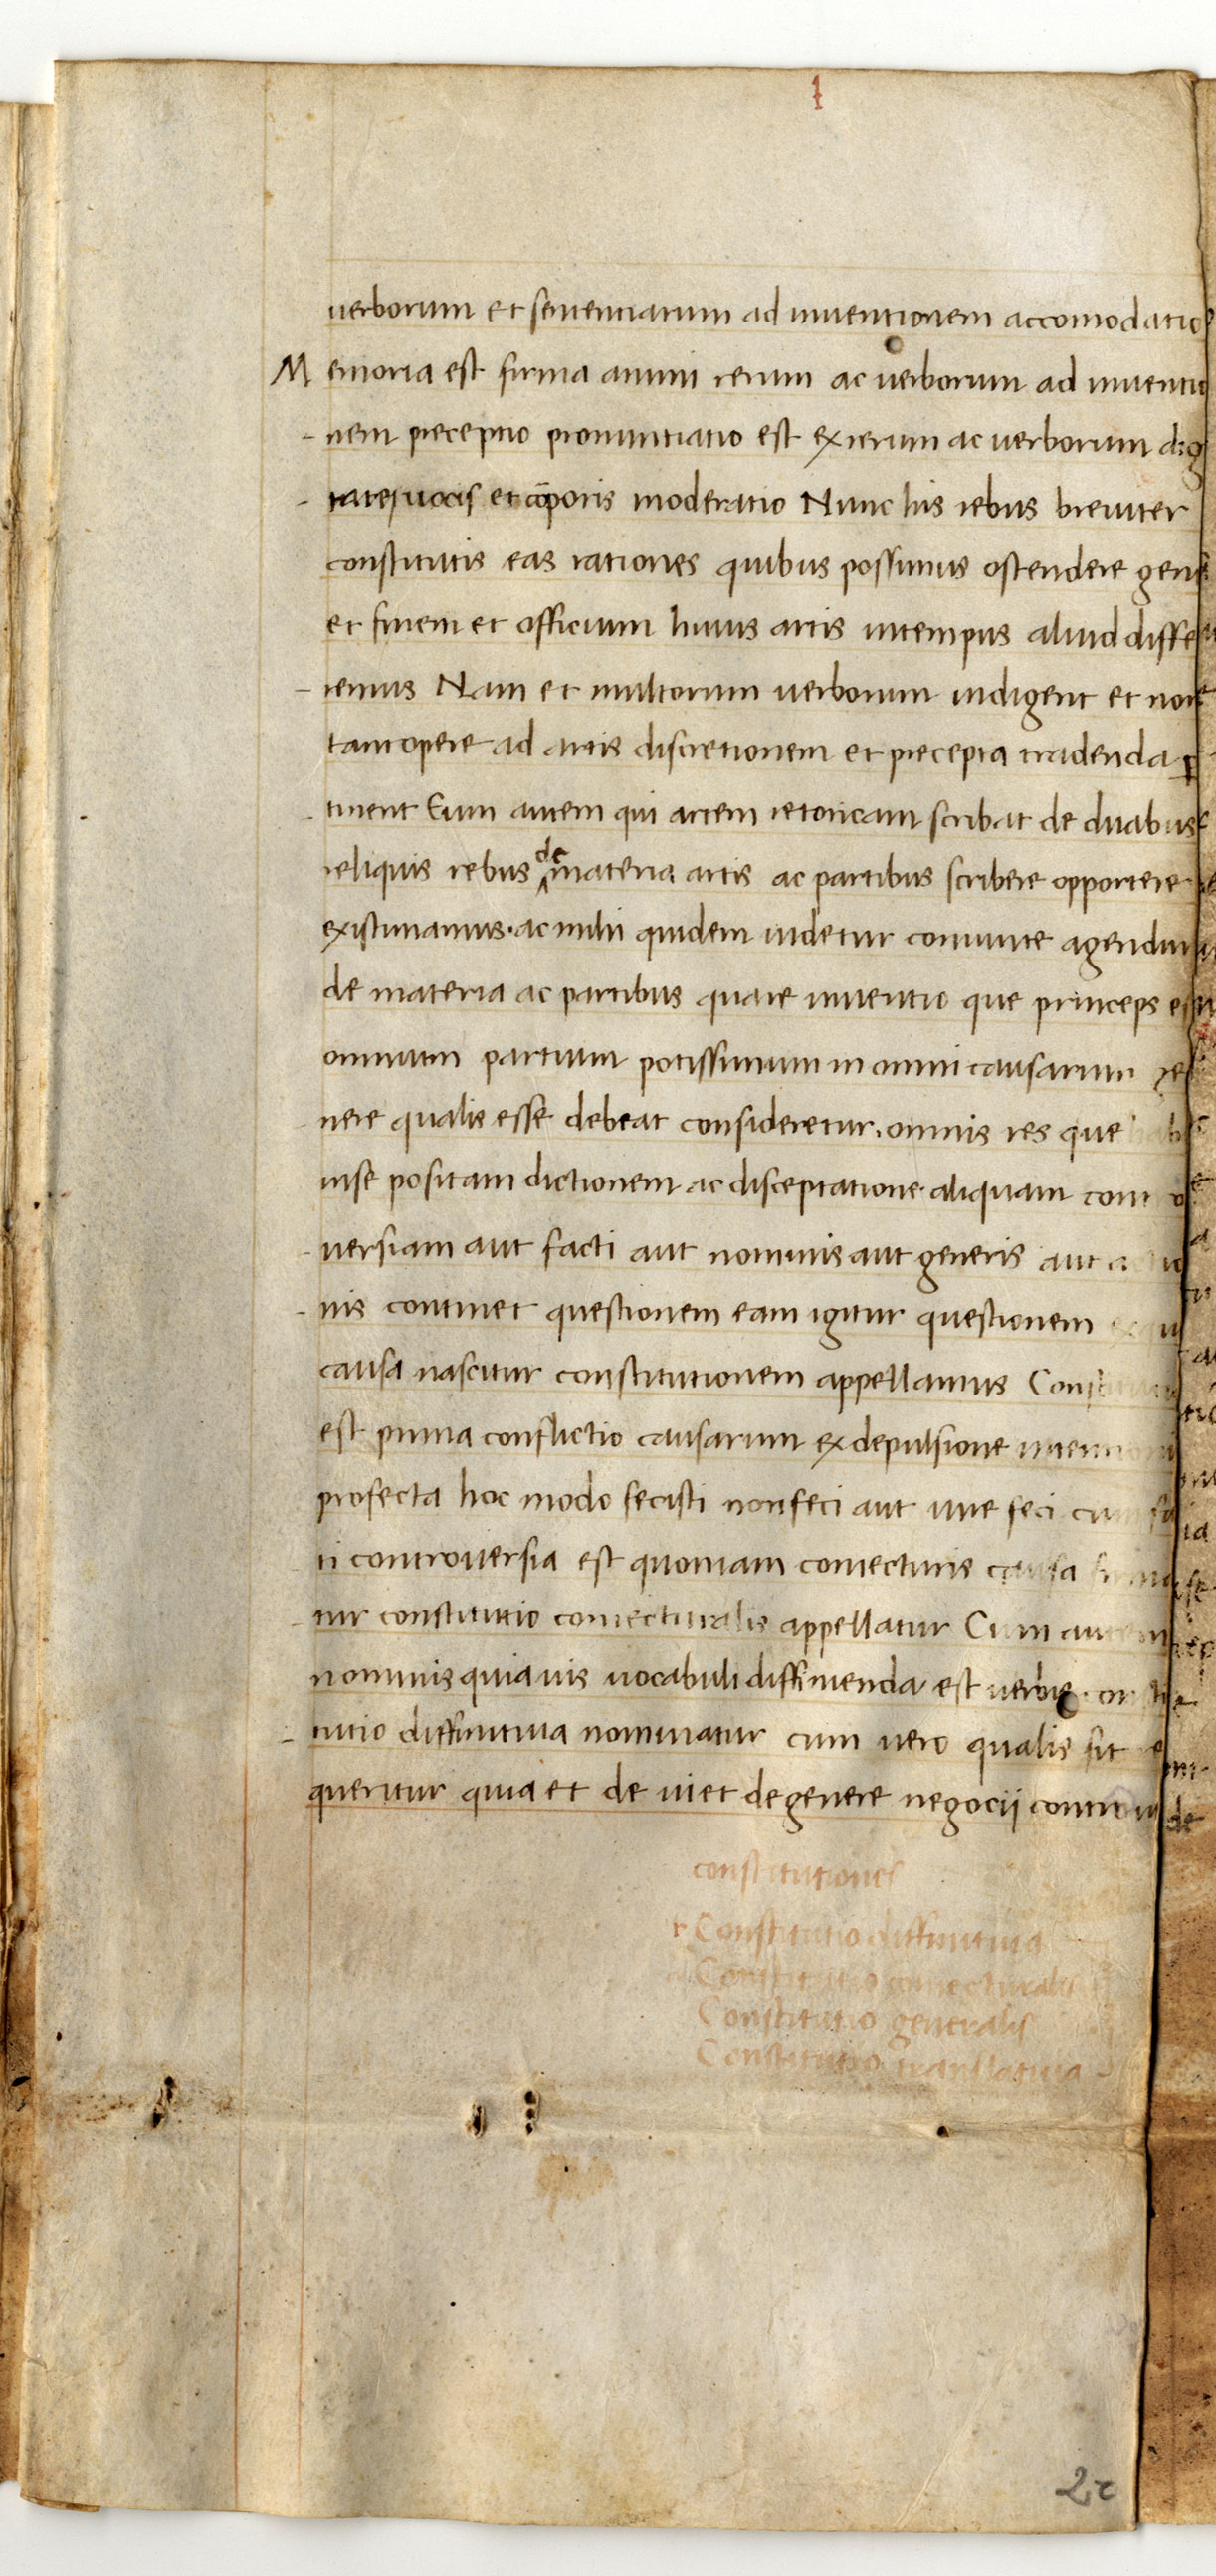 1
verborum et sententiarum ad inventionem accomodatio
Memoria est firma animi rerum ac verborum ad inventio
nem preceptio pronuntiatio est ex rerum ac verborum dig
tate vocis et corporis moderatio Nunc his rebus breviter
constitutis eas rationes quibus possimus ostendere gen
et finem et officium huius artis intempus aliud diffe
remus Nam et multorum verborum indigent et non
tantopere ad artis discretionem et precepta tradenda p
tinent Eum autem qui artem retoricam scribat de duabus
reliquis rebus de materia artis ac partibus scribere opportere
existimamus. ac mihi quidem videtur coniuncte agendum
de materia ac partibus quare inventio que princeps est
omnium partium potissimum in omni causarum ge
nere qualis esse debeat consideretur. omnis res que
inse positam dictionem ac disceptatione aliquam contro
versiam aut facti aut nominis aut generis aut
nis continet questionem eam igitur questionem
causa nascitur constitutionem appellamus
est prima conflictio causarum ex depulsione
profecta hoc modo fecisti non feci aut iure feci
ti controversia est quoniam coniecturis causa
tur constitutio coniecturalis appellatur Cum autem
nominis quia vis vocabuli diffinienda est verbis
tutio diffinitiva nominatur cum vero qualis sit
queritur quia et de vi et de genere negocii
constitutiones
Constitutio diffinitiva
Constitutio coniecturalis
Constitutio generalis
Constitutio translativa
2r